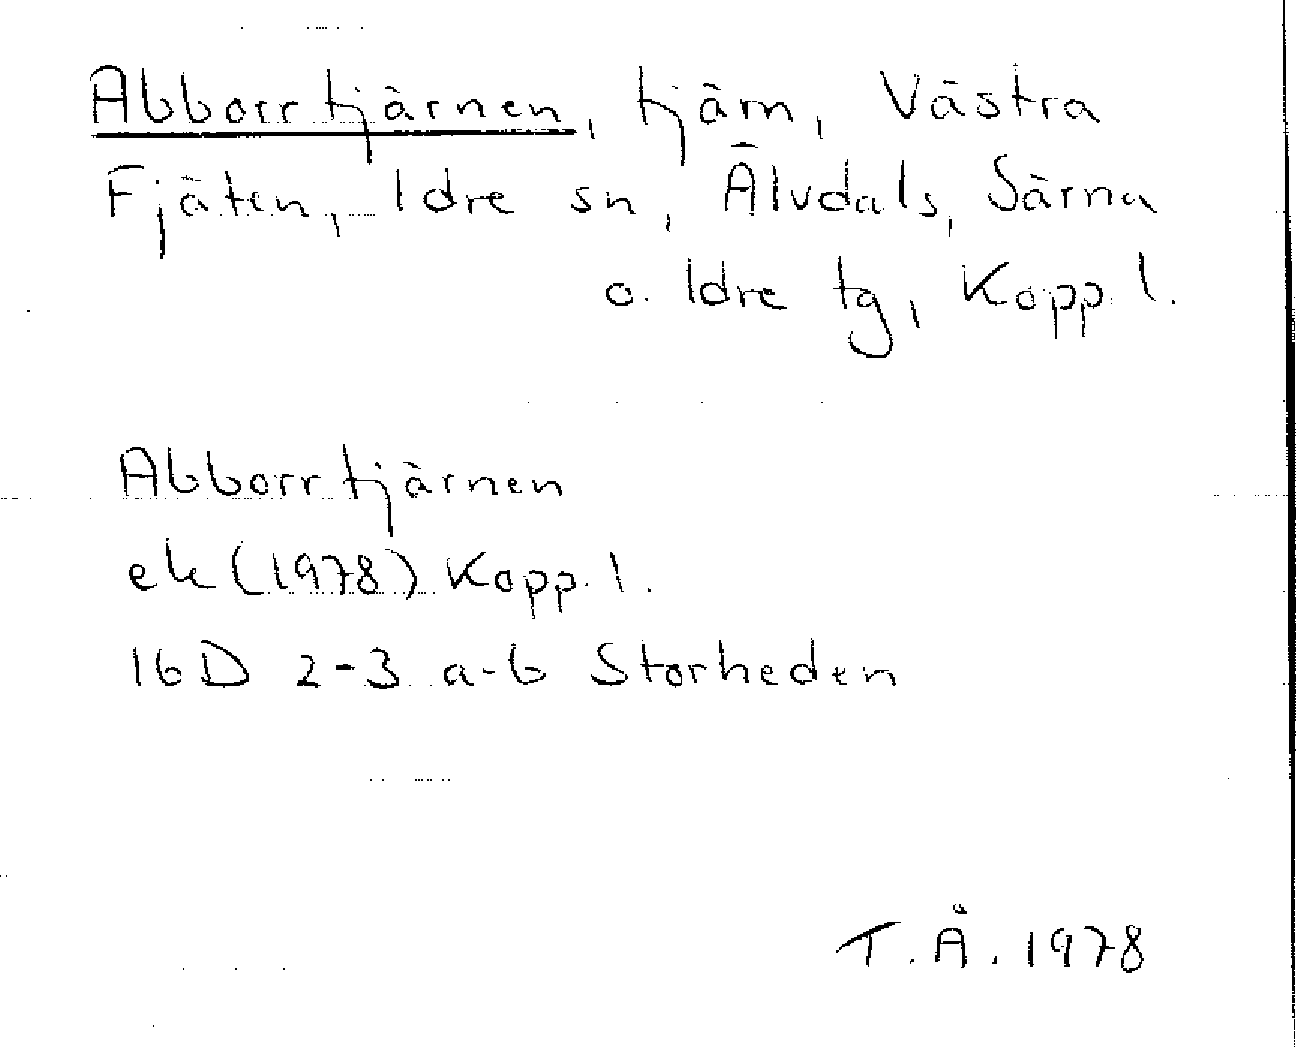 Abborrtjärnen, tjärn, Västra
Fjäten, Idre sn, Älvdals, Särna
o. Idre tg, Kopp. l.
Abborrtjärnen
ek (1978) Kopp. l.
16D 2-3 a-b Storheden
T. Å. 1978